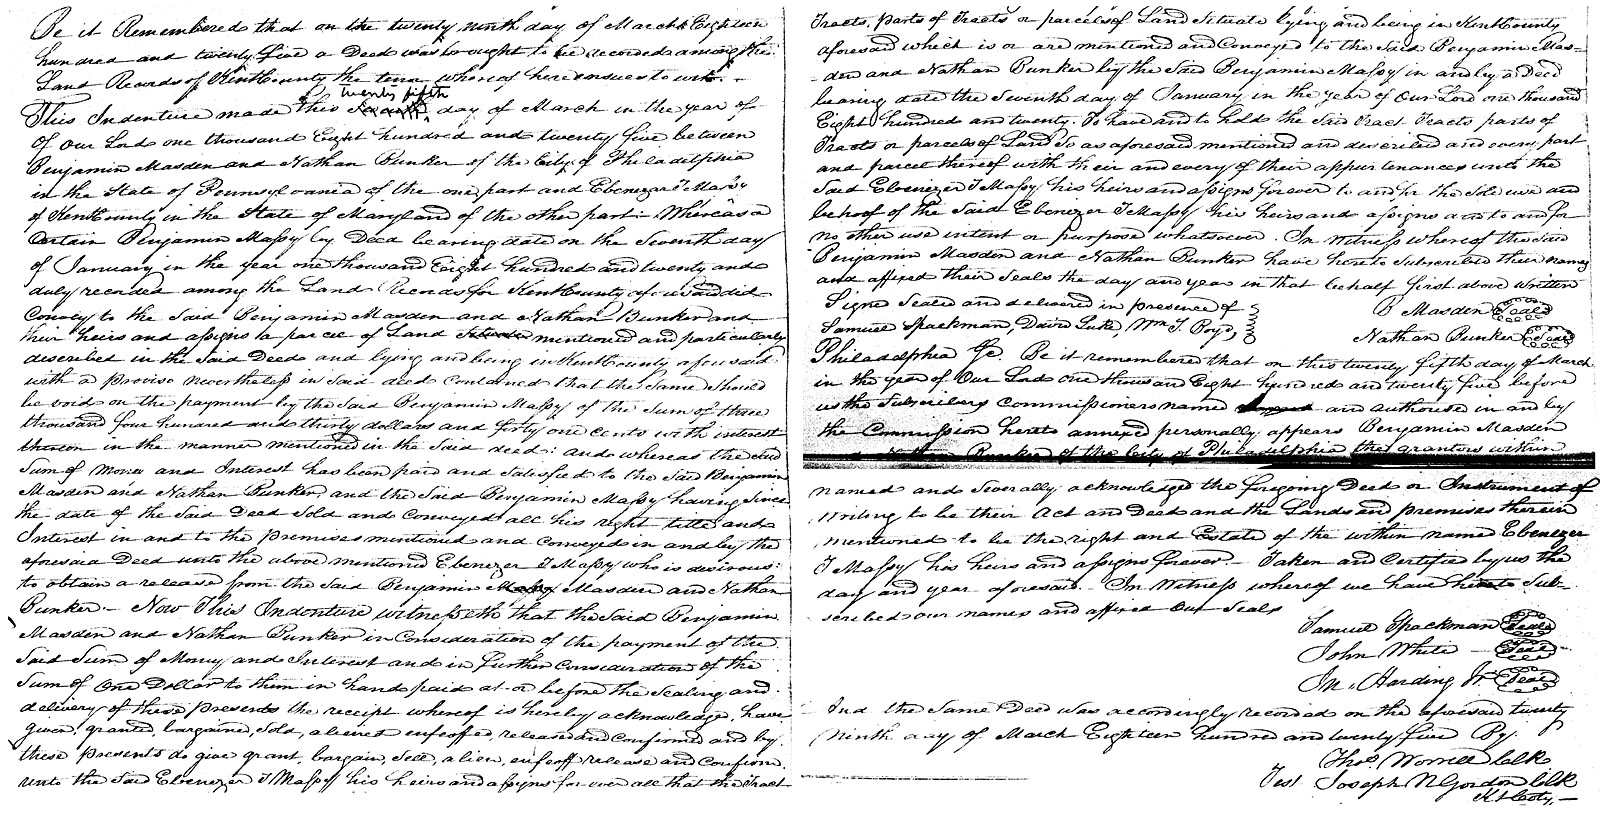 Be it Remembered that on the twenty ninth day of March Eighteen
hundred and twenty five a Deed was brought to be recorded among the
Land Records of Kent County the tenor whereof here ensues to wit. -
twenty fifth
This Indenture made this day of March in the year of
of our Lord one thousand Eight hundred and twenty five between
Benjamin Masden and Nathan Bunker of the City of Philadelphia
in the State of Pennsylvania of the one part and Ebenezer T Massy
of Kent County in the State of Maryland of the other part - Whereas a
Certain Benjamin Massy by Deed bearing date on the Seventh day
of January in the year one thousand Eight hundred and twenty and
duly recorded among the Land Records for Kent County aforesaid did
Convey to the Said Benjamin Masden and Nathan Bunker and
their heirs and assigns a parcel of Land Situate mentioned and particularly
described in the Said Deed and lying and being in Kent County aforesaid
with a proviso nevertheless in Said deed contained that the Same Should
be void on the payment by the Said Benjamin Massy of the Sum of three
thousand four hundred and thirty dollars and forty one cents with interest
thereon in the manner mentioned in the Said deed: and whereas the Said
Sum of Money and Interest has been paid and Satisfied to the Said Benjamin
Masden and Nathan Bunker, and the Said Benjamin Massy having Since
the date of the Said Deed Sold and Conveyed all his right title and
Interest in and to the premises mentioned and conveyed in and by the
aforesaid Deed unto the above mentioned Ebenezer T Massy who is desirous:
to obtain a release from the Said Benjamin Massy Masden and Nathan
Bunker - Now This Indenture witnesseth that the Said Benjamin
Masden and Nathan Bunker in Consideration of the payment of the
Said Sum of Money and Interest and in further consideration of the
Sum of One Dollar to them in hand paid at or before the Sealing and
delivery of these presents the receipt whereof is hereby acknowledge, have
given, granted, bargained, Sold, aliened enfeoffed, released and Confirmed and by
these presents do give grant, bargain, Sell, alien, enfeoff release and Confirm
unto the Said Ebenezer T Massy his heirs and assigns for ever all that the Tract
Tracts, parts of Tracts or parcels of Land Situate lying and being in Kent County
aforesaid which is or are mentioned and Conveyed to the Said Benjamin Mas-
-den and Nathan Bunker by the Said Benjamin Massy in and by a Deed
bearing date the Seventh day of January in the year of Our Lord one thousand
Eight hundred and twenty. To have and to hold the Said Tract Tracts parts of
Tracts or parcels of Land So as aforesaid mentioned and described and every part
and parcel thereof with their and every of their appurtenances unto the
Said Ebenezer T Massy his heirs and assigns forever to and for the Sole use and
behoof of the Said Ebenezer T Massy his heirs and assigns and to and for
no other use intent or purpose whatsoever. In Witness whereof the Said
Benjamin Masden and Nathan Bunker have hereto Subscribed their names
and affixed their Seals the day and year in that behalf first above written
Signed Sealed and delivered in presence of
B Masden Seal
Samuel Spackman, David Luke, Wm. T. Boyd,
Nathan Bunker Seal
Philadelphia Sc. Be it remembered that on this twenty fifth day of March
in the year of Our Lord one thousand Eight hundred and twenty five before
us the Subscribers Commissioners named and authorised in and by
the Commission hereto annexed personally appears Benjamin Masden
and Nathan Bunker of the City of Philadelphia the grantors within
named and Severally acknowledged the foregoing Deed or Instrument of
Writing to be their Act and Deed and the Lands and premises therein
mentioned to be the right and Estate of the within name Ebenezer
T Massy his heirs and assigns forever. - Taken and Certified by us the
day and year aforesaid. In Witness whereof we have hereto Sub-
scribed our names and affixed Our Seals
Samuel Spackman Seal
John White - Seal
Jn. Harding Jr. Seal
And the Same Deed was accordingly recorded on the aforesaid twenty
Ninth day of March Eighteen hundred and twenty five By.
Thos. Worrell Clk
Test Joseph N Gordon Clk
Kt Coty. -